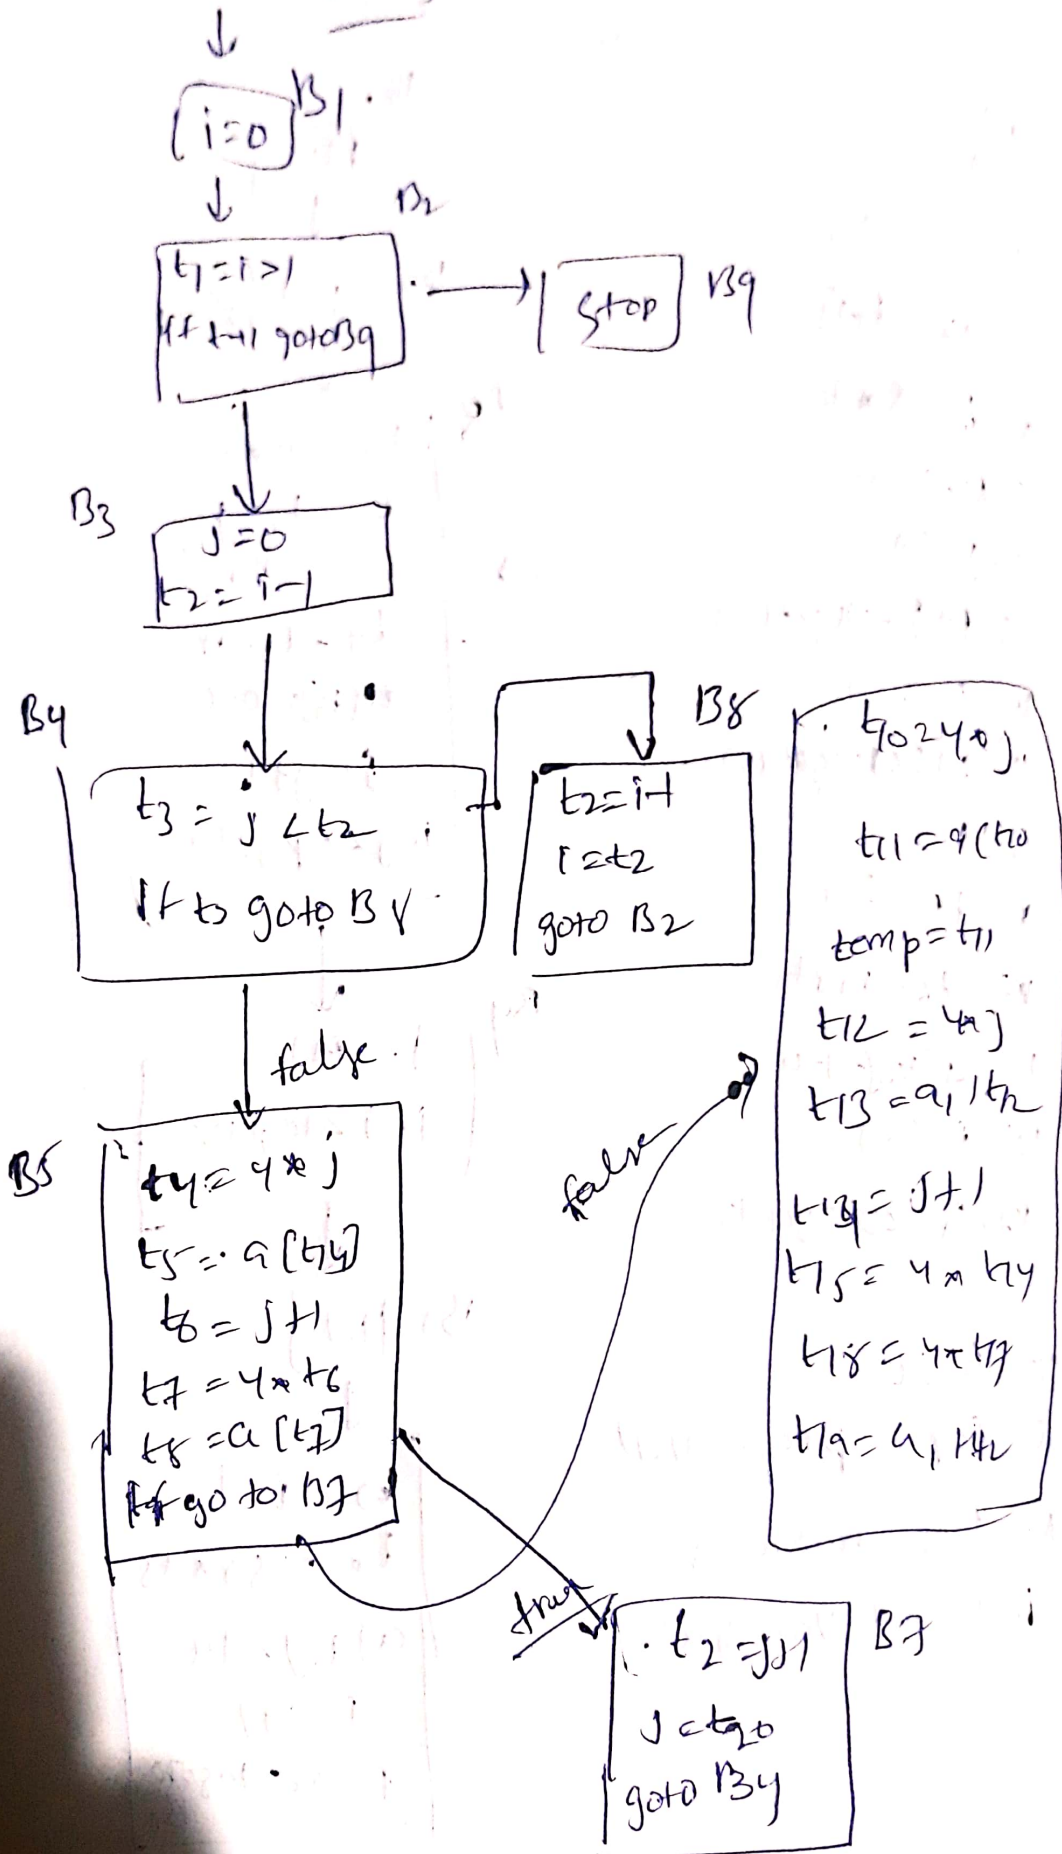 i=0
B1
B2
t1=i>1
goto B9
Stop
B9
B3
j=0
t2=i-1
B4
t3=j<t2
If t3 goto B8
B8
t2=i-1
i=t2
goto B2
false
B5
t4=4*j
t5=a[t4]
t6=j+1
t7=4*t6
t8=a[t7]
goto B7
false
true
t11=a(t10
temp=t11
t12=4*j
t13=a,t12
t14=j+1
t15=4*t14
t18=4*t17
B7
t2=j+1
j=t20
goto B4